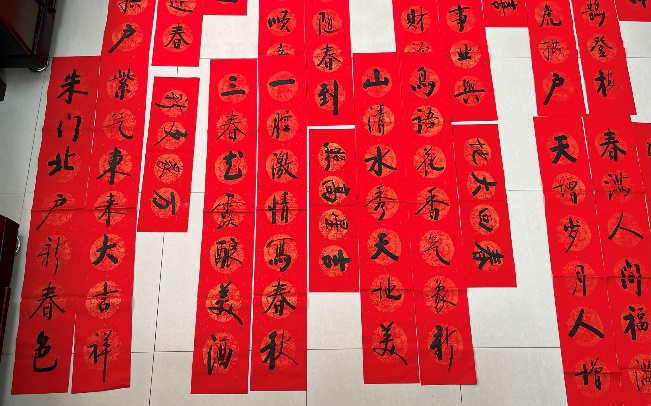 户
春
顺
随春到
财
事业兴
虎拱户
鹊登枝
朱门北户新春色
紫气东来大吉祥
三春露酿美酒
一腔激情写春秋
山清水秀天地美
鸟语花香气象新
回春
天增岁月人增
春满人间福满